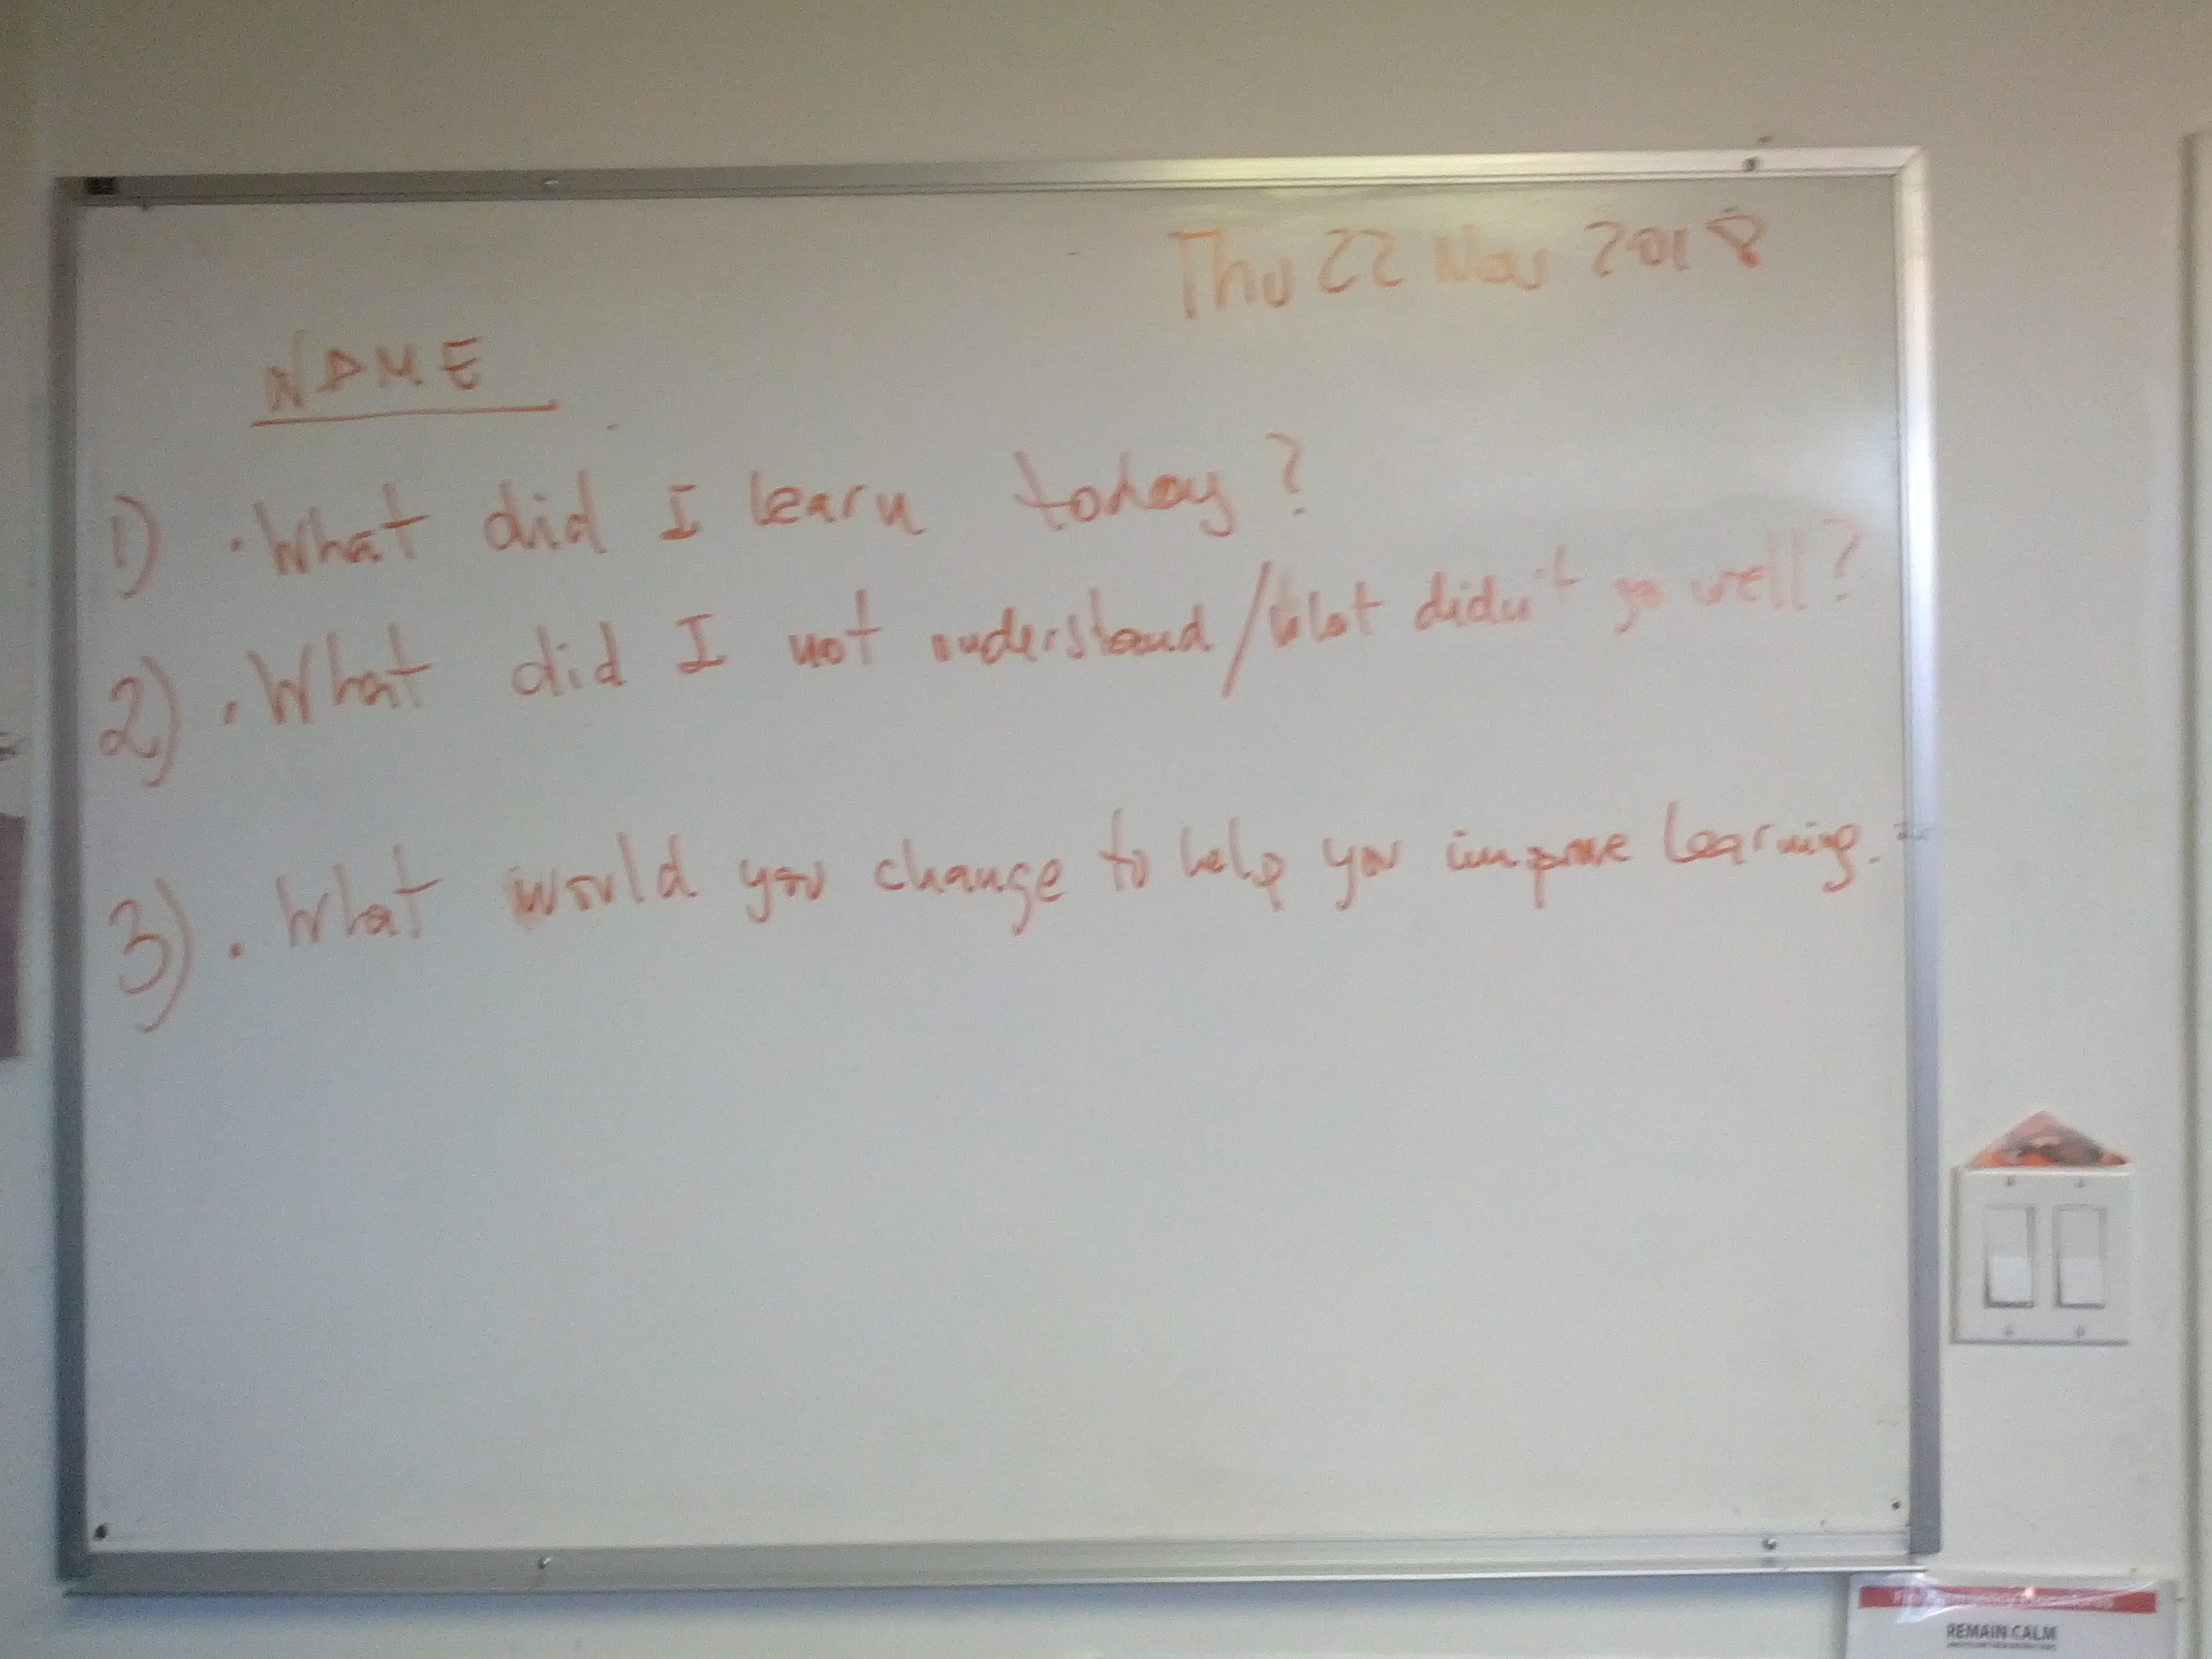 Thu 22 Nov 2018
NAME
1) · What did I learn today?
2) · What did I not understand/What didn't go well?
3) · What would you change to help you improve learning.
Fire Emergency Procedures
REMAIN CALM